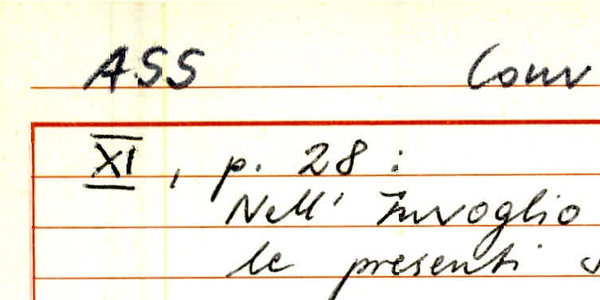 ASS Conv
XI, p. 28:
Nell' Invoglio
le presenti